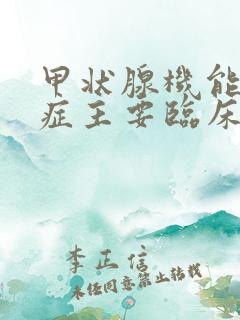 甲状腺機能
症主要臨床
李正信
未经同意禁止转载